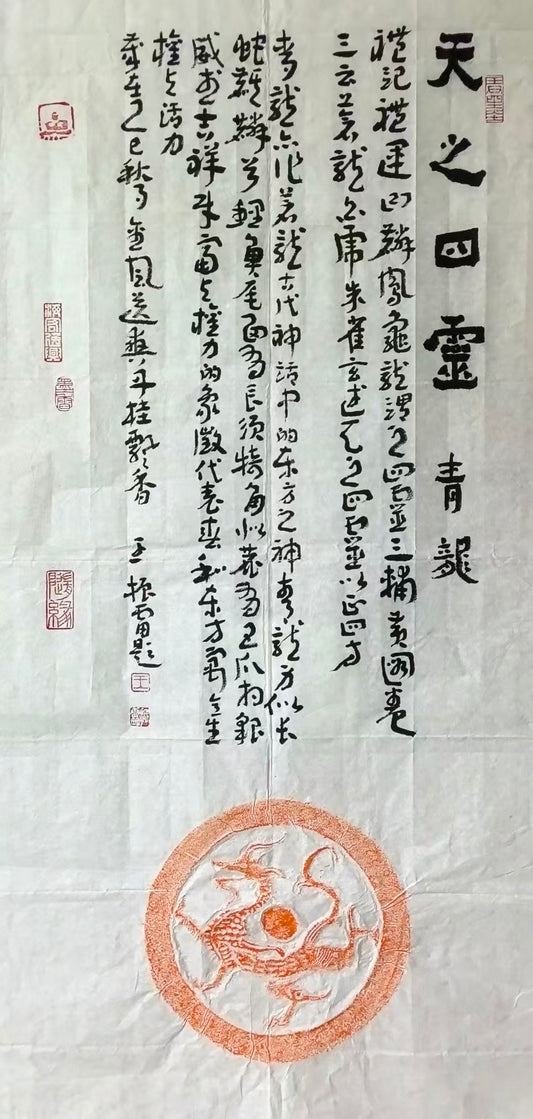 天之四靈 青龍
禮記禮運曰麟鳳龜龍謂之四靈三輔黃圖卷
三云蒼龍白虎朱雀玄武天之四靈以正四方
青龍亦作蒼龍古代神話中的東方之神青龍方似長
蛇麒麟首鯉魚尾面有長須犄角似鹿有五爪相貌
威武吉祥財富與權力的象徵代表春和東方萬物生
機與活力
歲在乙巳秋月金風送爽丹桂飄香 王振雷題
隨緣
王